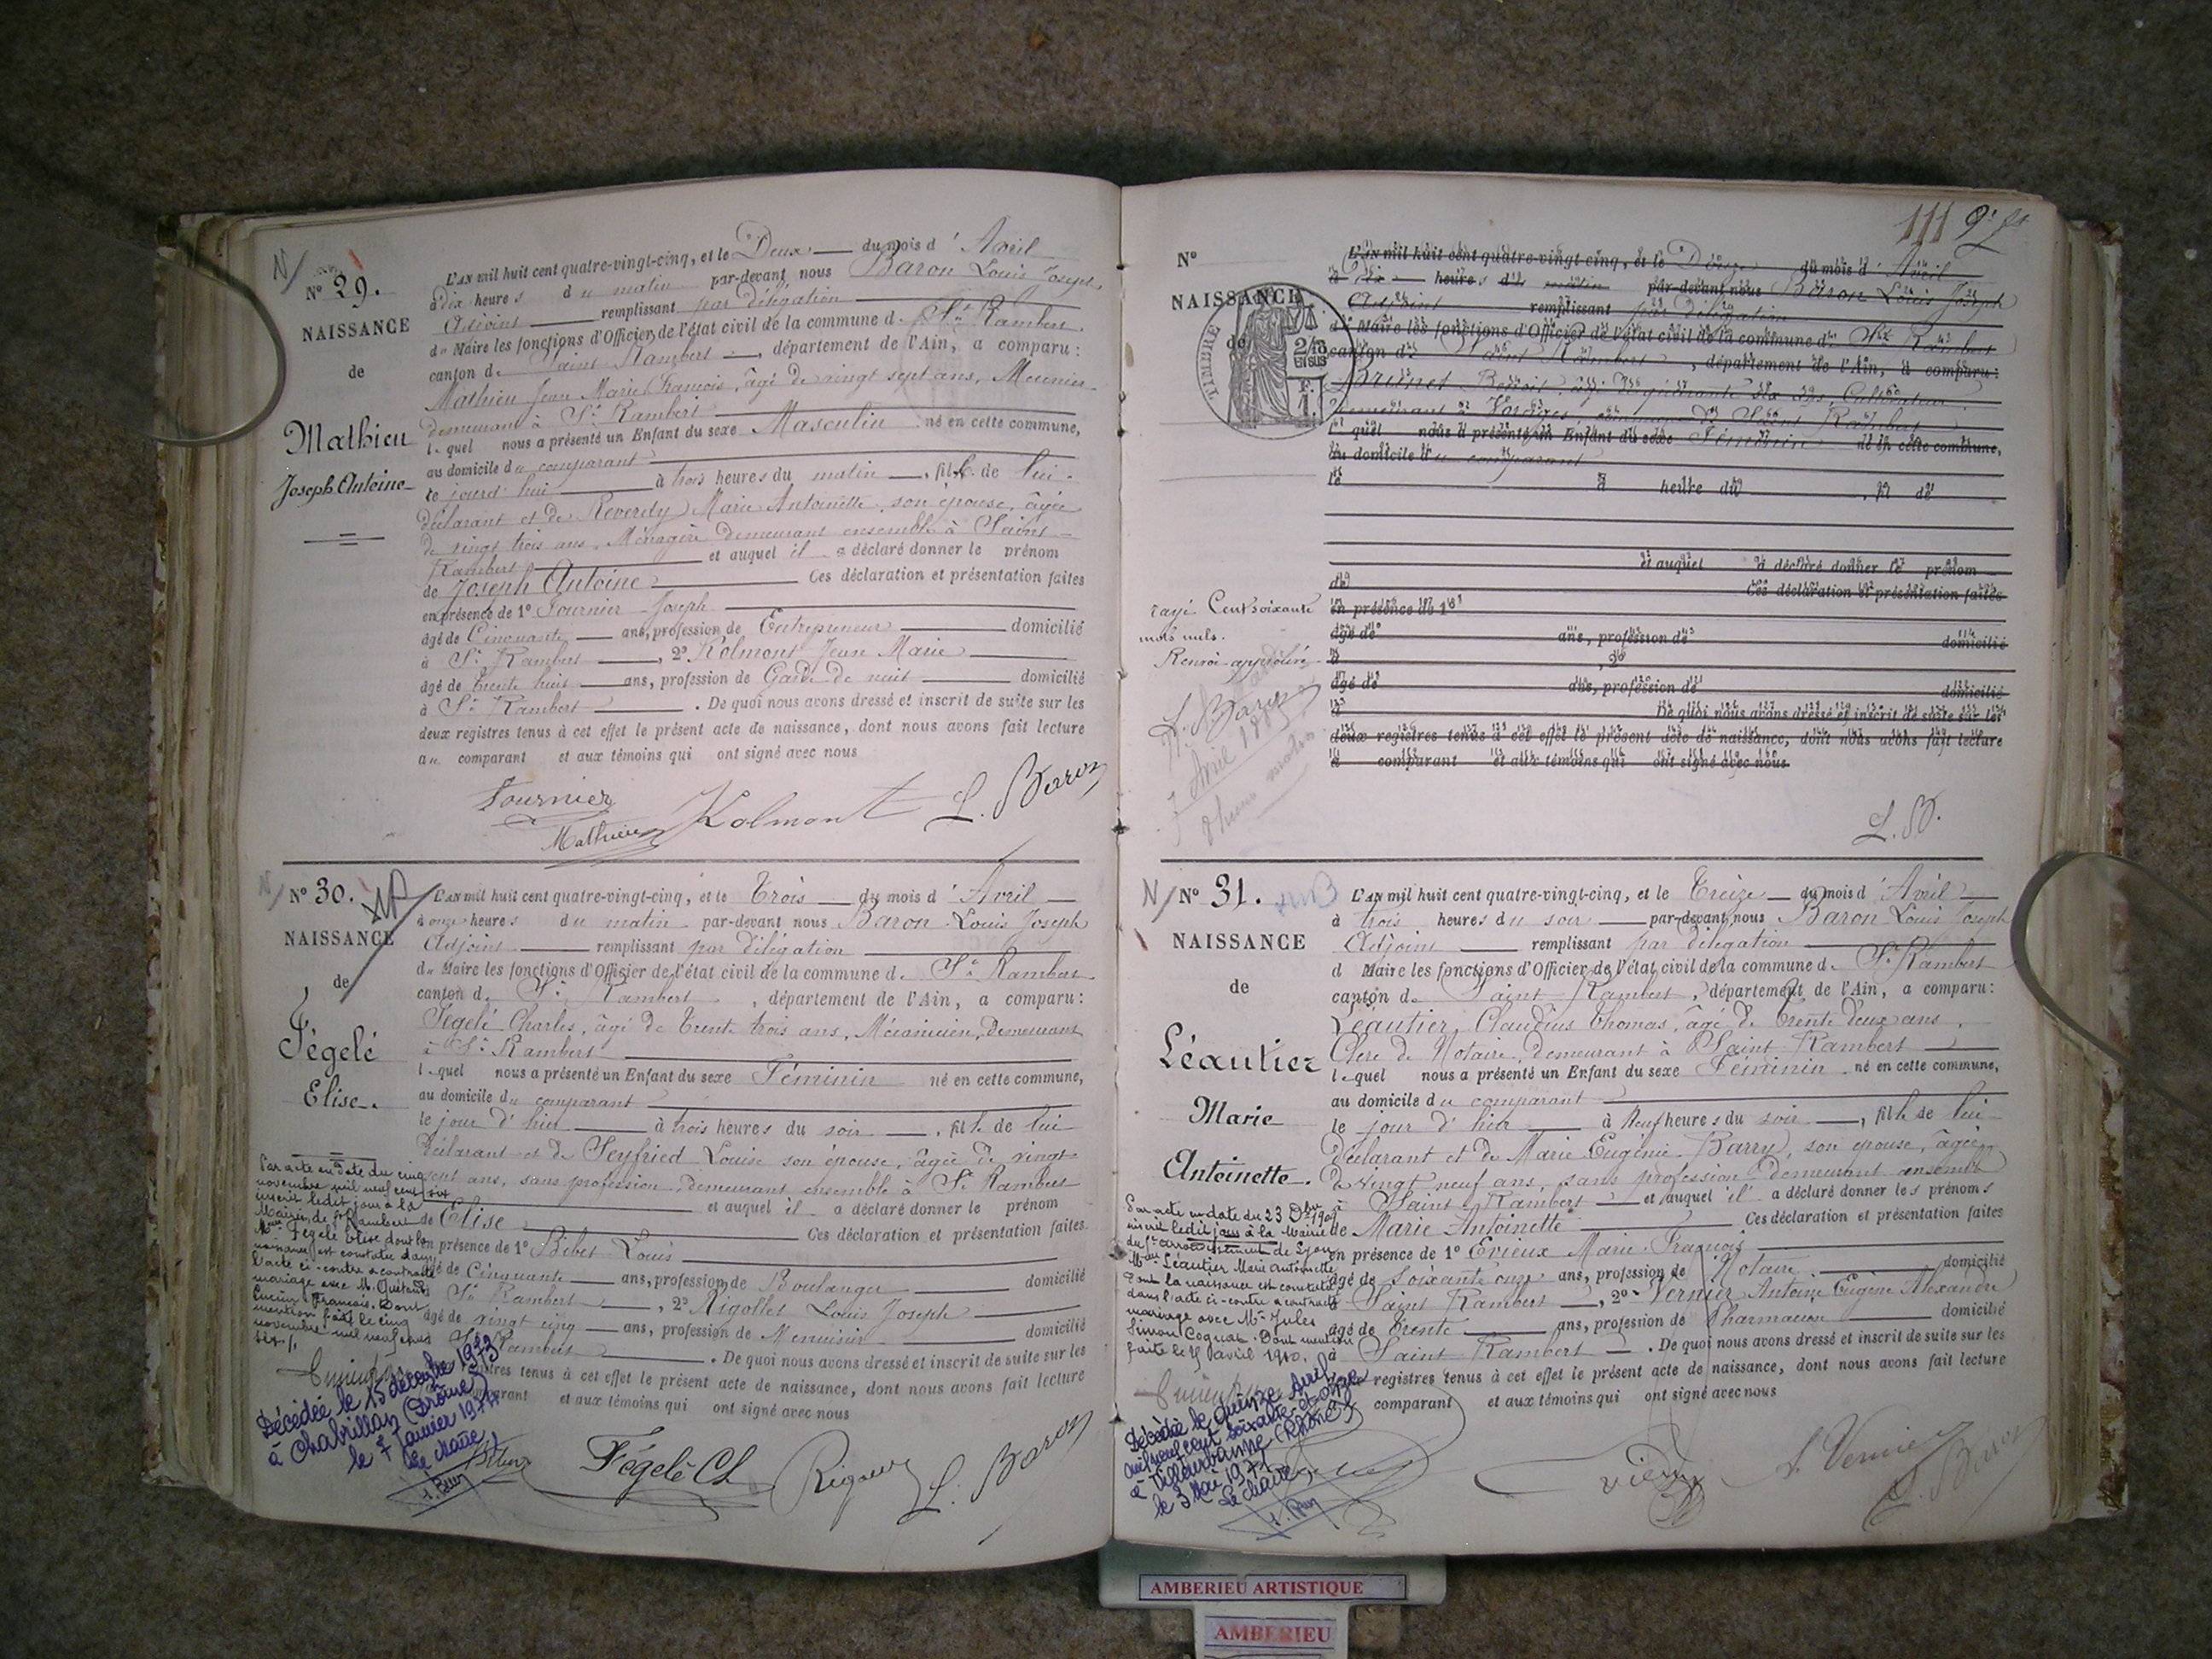 N° 29.
NAISSANCE
de
Mathieu
Joseph Antoine
L'AN mil huit cent quatre-vingt-cinq, et le Deux du mois d'Avril
à dix heures du matin par-devant nous Baron Louis Joseph
Adjoint remplissant par délégation
du Maire les fonctions d'Officier de l'état civil de la commune de St Rambert
canton de Saint Rambert, département de l'Ain, a comparu :
Mathieu Jean Marie François, âgé de vingt sept ans, Meunier
demeurant à St Rambert
lequel nous a présenté un Enfant du sexe Masculin né en cette commune,
au domicile du comparant
le jourd'hui à trois heures du matin, fils de lui
déclarant et de Reverdy Marie Antoinette, son épouse, âgée
de vingt trois ans, Ménagère demeurant ensemble à Saint
Rambert et auquel il a déclaré donner le prénom
de Joseph Antoine Ces déclaration et présentation faites
en présence de 1° Fournier Joseph
âgé de Cinquante ans, profession de Entrepreneur domicilié
à St Rambert, 2° Kolmont Jean Marie
âgé de trente huit ans, profession de Garde de nuit domicilié
à St Rambert. De quoi nous avons dressé et inscrit de suite sur les
deux registres tenus à cet effet le présent acte de naissance, dont nous avons fait lecture
au comparant et aux témoins qui ont signé avec nous
Fournier
Mathieu Kolmont L. Baron
N° 30.
NAISSANCE
de
Fégelé
Elise.
L'AN mil huit cent quatre-vingt-cinq, et le Trois du mois d'Avril
à onze heures du matin par-devant nous Baron Louis Joseph
Adjoint remplissant par délégation
du Maire les fonctions d'Officier de l'état civil de la commune de St Rambert
canton de St Rambert, département de l'Ain, a comparu :
Fégelé Charles, âgé de Trente trois ans, Mécanicien, demeurant
à St Rambert
lequel nous a présenté un Enfant du sexe Féminin né en cette commune,
au domicile du comparant
le jour d'hier à trois heures du soir, fille de lui
déclarant et de Seyfried Louise son épouse, âgée de vingt
sept ans, sans profession, demeurant ensemble à St Rambert
et auquel il a déclaré donner le prénom
de Elise Ces déclaration et présentation faites
en présence de 1° Bibet Louis
âgé de Cinquante ans, profession de Boulanger domicilié
à St Rambert, 2° Rigollet Louis Joseph
âgé de vingt cinq ans, profession de Menuisier domicilié
à St Rambert. De quoi nous avons dressé et inscrit de suite sur les
registres tenus à cet effet le présent acte de naissance, dont nous avons fait lecture
comparant et aux témoins qui ont signé avec nous
Par acte en date du cinq
novembre mil neuf cent six
inscrit ledit jour à la
Mairie de St Rambert
Mme Fégelé Elise dont la
naissance est constatée dans
l'acte ci-contre a contracté
mariage avec M.
François. Dont
mention faite le cinq
novembre mil neuf cent
six
Décédée le 15 décembre 1973
à Chabrillan (Drôme)
le 7 Janvier 1974
Le Maire,
Fégelé Ch L. Baron
111
N°
NAISSANCE
de
TIMBRE
L'AN mil huit cent quatre-vingt-cinq, et le Douze du mois d'Avril
à dix heures du matin par-devant nous Baron Louis Joseph
Adjoint remplissant par délégation
du Maire les fonctions d'Officier de l'état civil de la commune de St Rambert
canton de Saint Rambert, département de l'Ain, a comparu :
Brunet Benoit, âgé de quarante six ans, Cultivateur
demeurant à commune de Saint Rambert
lequel nous a présenté un Enfant du sexe Féminin né en cette commune,
au domicile du comparant
le à heure du , fil de
et auquel a déclaré donner le prénom
de Ces déclaration et présentation faites
en présence de 1°
âgé de ans, profession de domicilié
à , 2°
âgé de ans, profession de domicilié
à De quoi nous avons dressé et inscrit de suite sur les
deux registres tenus à cet effet le présent acte de naissance, dont nous avons fait lecture
à comparant et aux témoins qui ont signé avec nous
rayé Cent soixante
mots nuls.
Renvoi approuvé
L. Baron
L. B.
N° 31.
NAISSANCE
de
Léautier
Marie
Antoinette.
L'AN mil huit cent quatre-vingt-cinq, et le Treize du mois d'Avril
à trois heures du soir par-devant nous Baron Louis Joseph
Adjoint remplissant par délégation
d Maire les fonctions d'Officier de l'état civil de la commune de St Rambert
canton de Saint Rambert, département de l'Ain, a comparu :
Léautier, Claudius Thomas, âgé de trente deux ans,
Clerc de Notaire, demeurant à Saint Rambert
lequel nous a présenté un Enfant du sexe Féminin né en cette commune,
au domicile du comparant
le jour d'hier à Neuf heures du soir, fille de lui
déclarant et de Marie Eugénie Barry, son épouse, âgée
de vingt neuf ans, sans profession demeurant ensemble
à Saint Rambert et auquel il a déclaré donner les prénoms
de Marie Antoinette Ces déclaration et présentation faites
en présence de 1° Evieux Marie François
âgé de soixante onze ans, profession de Notaire domicilié
à Saint Rambert, 2° Vernier Antoine Eugène Alexandre
âgé de trente ans, profession de Pharmacien domicilié
à Saint Rambert. De quoi nous avons dressé et inscrit de suite sur les
registres tenus à cet effet le présent acte de naissance, dont nous avons fait lecture
comparant et aux témoins qui ont signé avec nous
Par acte en date du 23 Dbre 1909
inscrit ledit jour à la Mairie
du arrondissement de Lyon
Léautier Marie Antoinette
dont la naissance est constatée
dans l'acte ci-contre a contracté
mariage avec Mr Jules
Simon Cognat. Dont mention
faite le avril 1910.
Décédée le quinze Avril
mil neuf cent soixante-et-onze
à Villeurbanne (Rhône)
le 3 Mai 1971
Le Maire
Vernier
L. Baron
AMBERIEU ARTISTIQUE
AMBERIEU